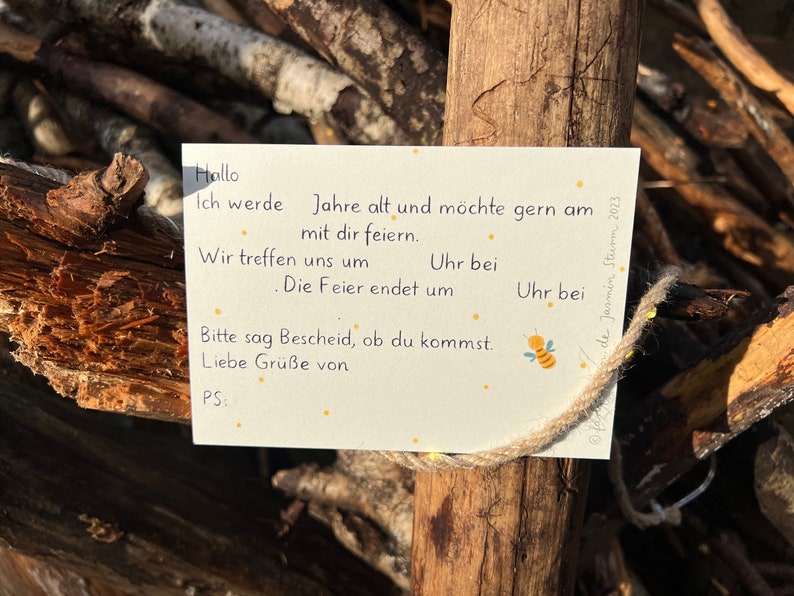 Hallo
Ich werde Jahre alt und möchte gern am
mit dir feiern.
Wir treffen uns um Uhr bei
. Die Feier endet um Uhr bei
.
Bitte sag Bescheid, ob du kommst.
Liebe Grüße von
PS:
de Jasmin Sturm 2023